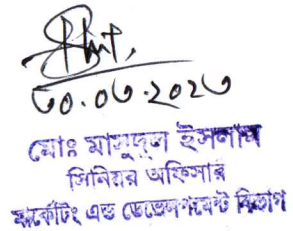 ৩০.০৬.২০২৩
মোঃ মাসুদুল ইসলাম
সিনিয়র অফিসার
মার্কেটিং এন্ড ডেভেলপমেন্ট বিভাগ